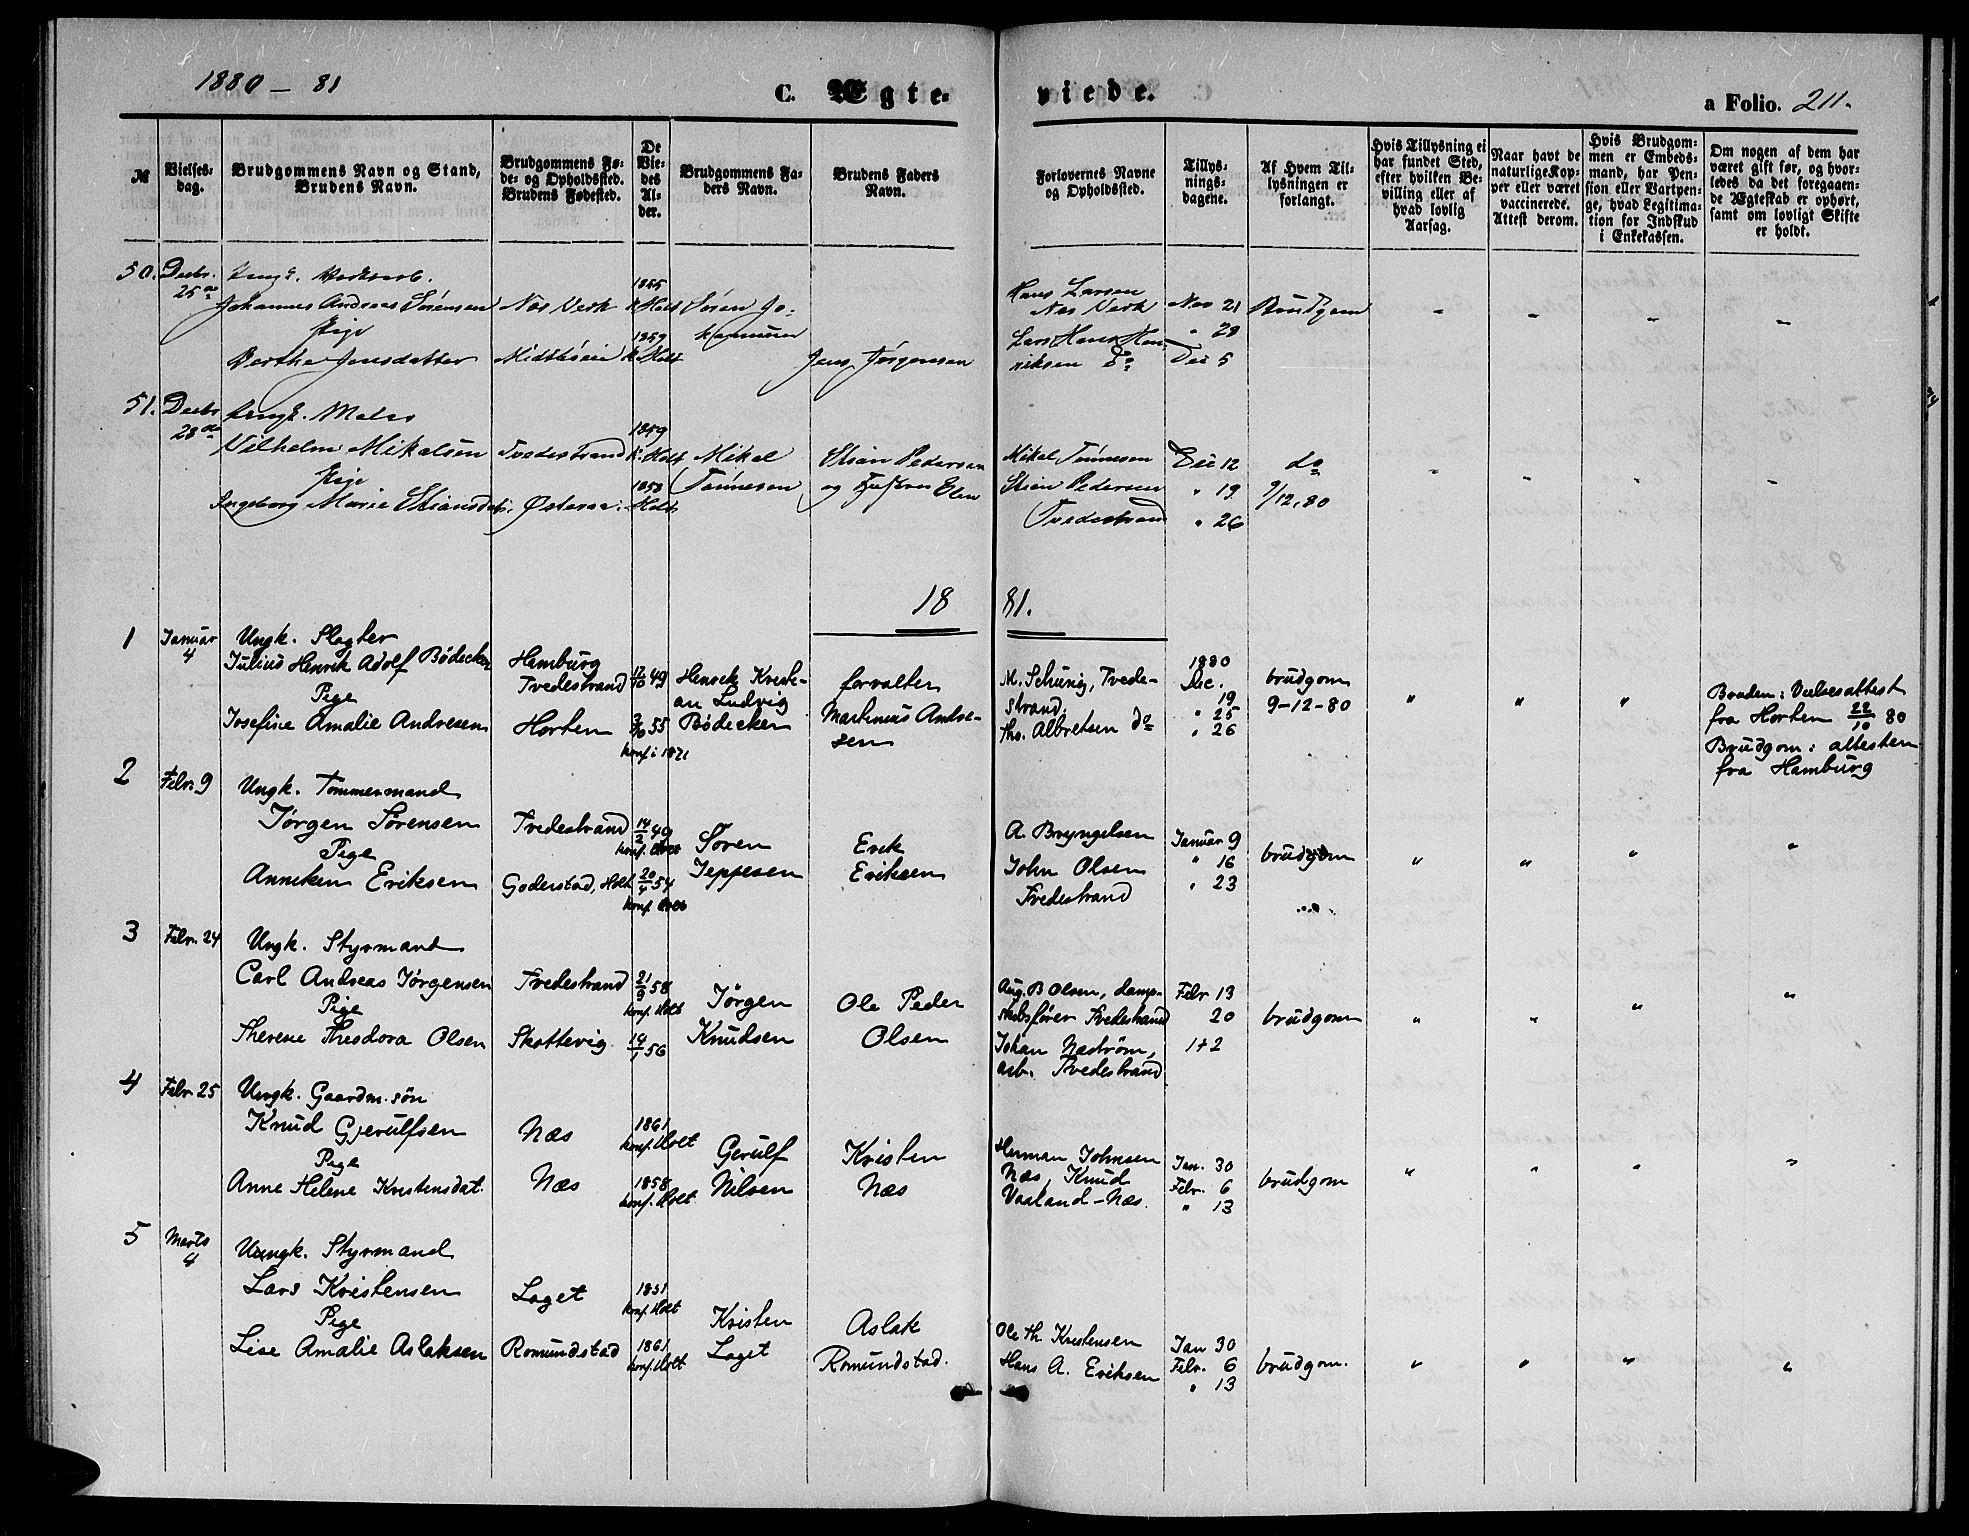 1880 - 81
C. Ægte-
viede.
a Folio. 211.
№
Vielses-
dag.
Brudgommens Navn og Stand,
Brudens Navn.
Brudgommens Fø-
de- og Opholdssted.
Brudens Fødested.
De
Vie-
des
Al-
der.
Brudgommens Fa-
ders Navn.
Brudens Faders
Navn.
Forlovernes Navne
og Opholdssted.
Tillys-
nings-
dagene.
Af Hvem Til-
lysningen er
forlangt.
Hvis Tillysning ei
har fundet Sted,
efter hvilken Be-
villing eller af
hvad lovlig
Aarsag.
Naar havt de
naturlige Kop-
per eller været
vaccinerede.
Attest derom.
Hvis Brudgom-
men er Embeds-
mand, har Pen-
sion eller Vartpen-
ge, hvad Legitima-
tion for Indskud
i Enkekassen.
Om nogen af dem har
været gift før, og hvor-
ledes da det foregaaen-
de Ægteskab er ophørt,
samt om lovligt Skifte
er holdt.
50. Decbr.
25de
Johannes Andreas Sørensen
Pige
Berthe Jensdatter
Næs Verk
1859
k. Holt
Søren Jo-
Jens Jørgensen
Hans Larsen
Næs Verk
Lars Hans Hen-
riksen Do
Nov 21
" 28
Dec 5
Brudgom
51. Decbr
28de
Ungk. Maler
Vilhelm Mikalsen
Pige
Ingeborg Marie Stiansdat.
Tvedestrand
1859
k. Holt
1858
Holt
Mikal
Tønnesen
Stian Pedersen
Mikal Tønnesen
Stian Pedersen
Tvedestrand
Dec 12
" 19
" 26
do
9/12.80
18 81.
1 Januar
4
Ungk. Slagter
Julius Henrik Adolf Bødecker
Pige
Josefine Amalie Andresen
Hamburg
Tvedestrand
Horten
17/10 49
55
konf. i 1871
Henrik Kristi-
an Ludvig
Bødecker
forvalter
Martinius Andre-
sen
M. Schunig, Tvede-
strand.
Ths. Albretsen do
1880
Dec.
19
" 25
" 26
brudgom
9-12-80
Bruden: Vielsesattest
fra Horten 22/10 80
Brudgom: attesten
fra Hamburg
2 Febr. 9
Ungk. Tømmermand
Jørgen Sørensen
Pige
Anneken Eriksen
Tvedestrand
Goderstad, Holt
14/2 49
konf. Holt
20/4 54
konf. Holt
Søren
Jeppesen
Erik
Eriksen
A. Bryngelsen
John Olsen
Tvedestrand
Januar 9
" 16
" 23
brudgom
3 Febr. 24
Ungk. Styrmand
Carl Andreas Jørgensen
Pige
Therese Theodora Olsen
Tvedestrand
Skottevig
21/9 58
konf. Holt
19/1 56
Jørgen
Knudsen
Ole Peder
Olsen
Aug. B Olsen, damp-
skibsfører Tvedestrand
Johan Næstrøm,
arb. Tvedestrand
Febr 13
20
1+2
brudgom
4 Febr. 25
Ungk. Gaardm. søn
Knud Gjerulfsen
Pige
Anne Helene Kristensdat.
Næs
Næs
1861
konf. Holt
1858
konf. Holt
Gerulf
Nilsen
Kristen
Næs
Herman Johnsen
Næs, Knud
Vaaland - Næs.
Jan. 30
Febr. 6
" 13
brudgom
5 Marts
4
Ungk. Styrmand
Lars Kristensen
Pige
Lise Amalie Aslaksen
Laget
Romundstad
1851
konf. Holt
1861
konf. Holt
Kristen
Laget
Aslak
Romundstad.
Ole Th. Kristensen
Hans A. Eriksen
Jan 30
Febr. 6
" 13
brudgom.